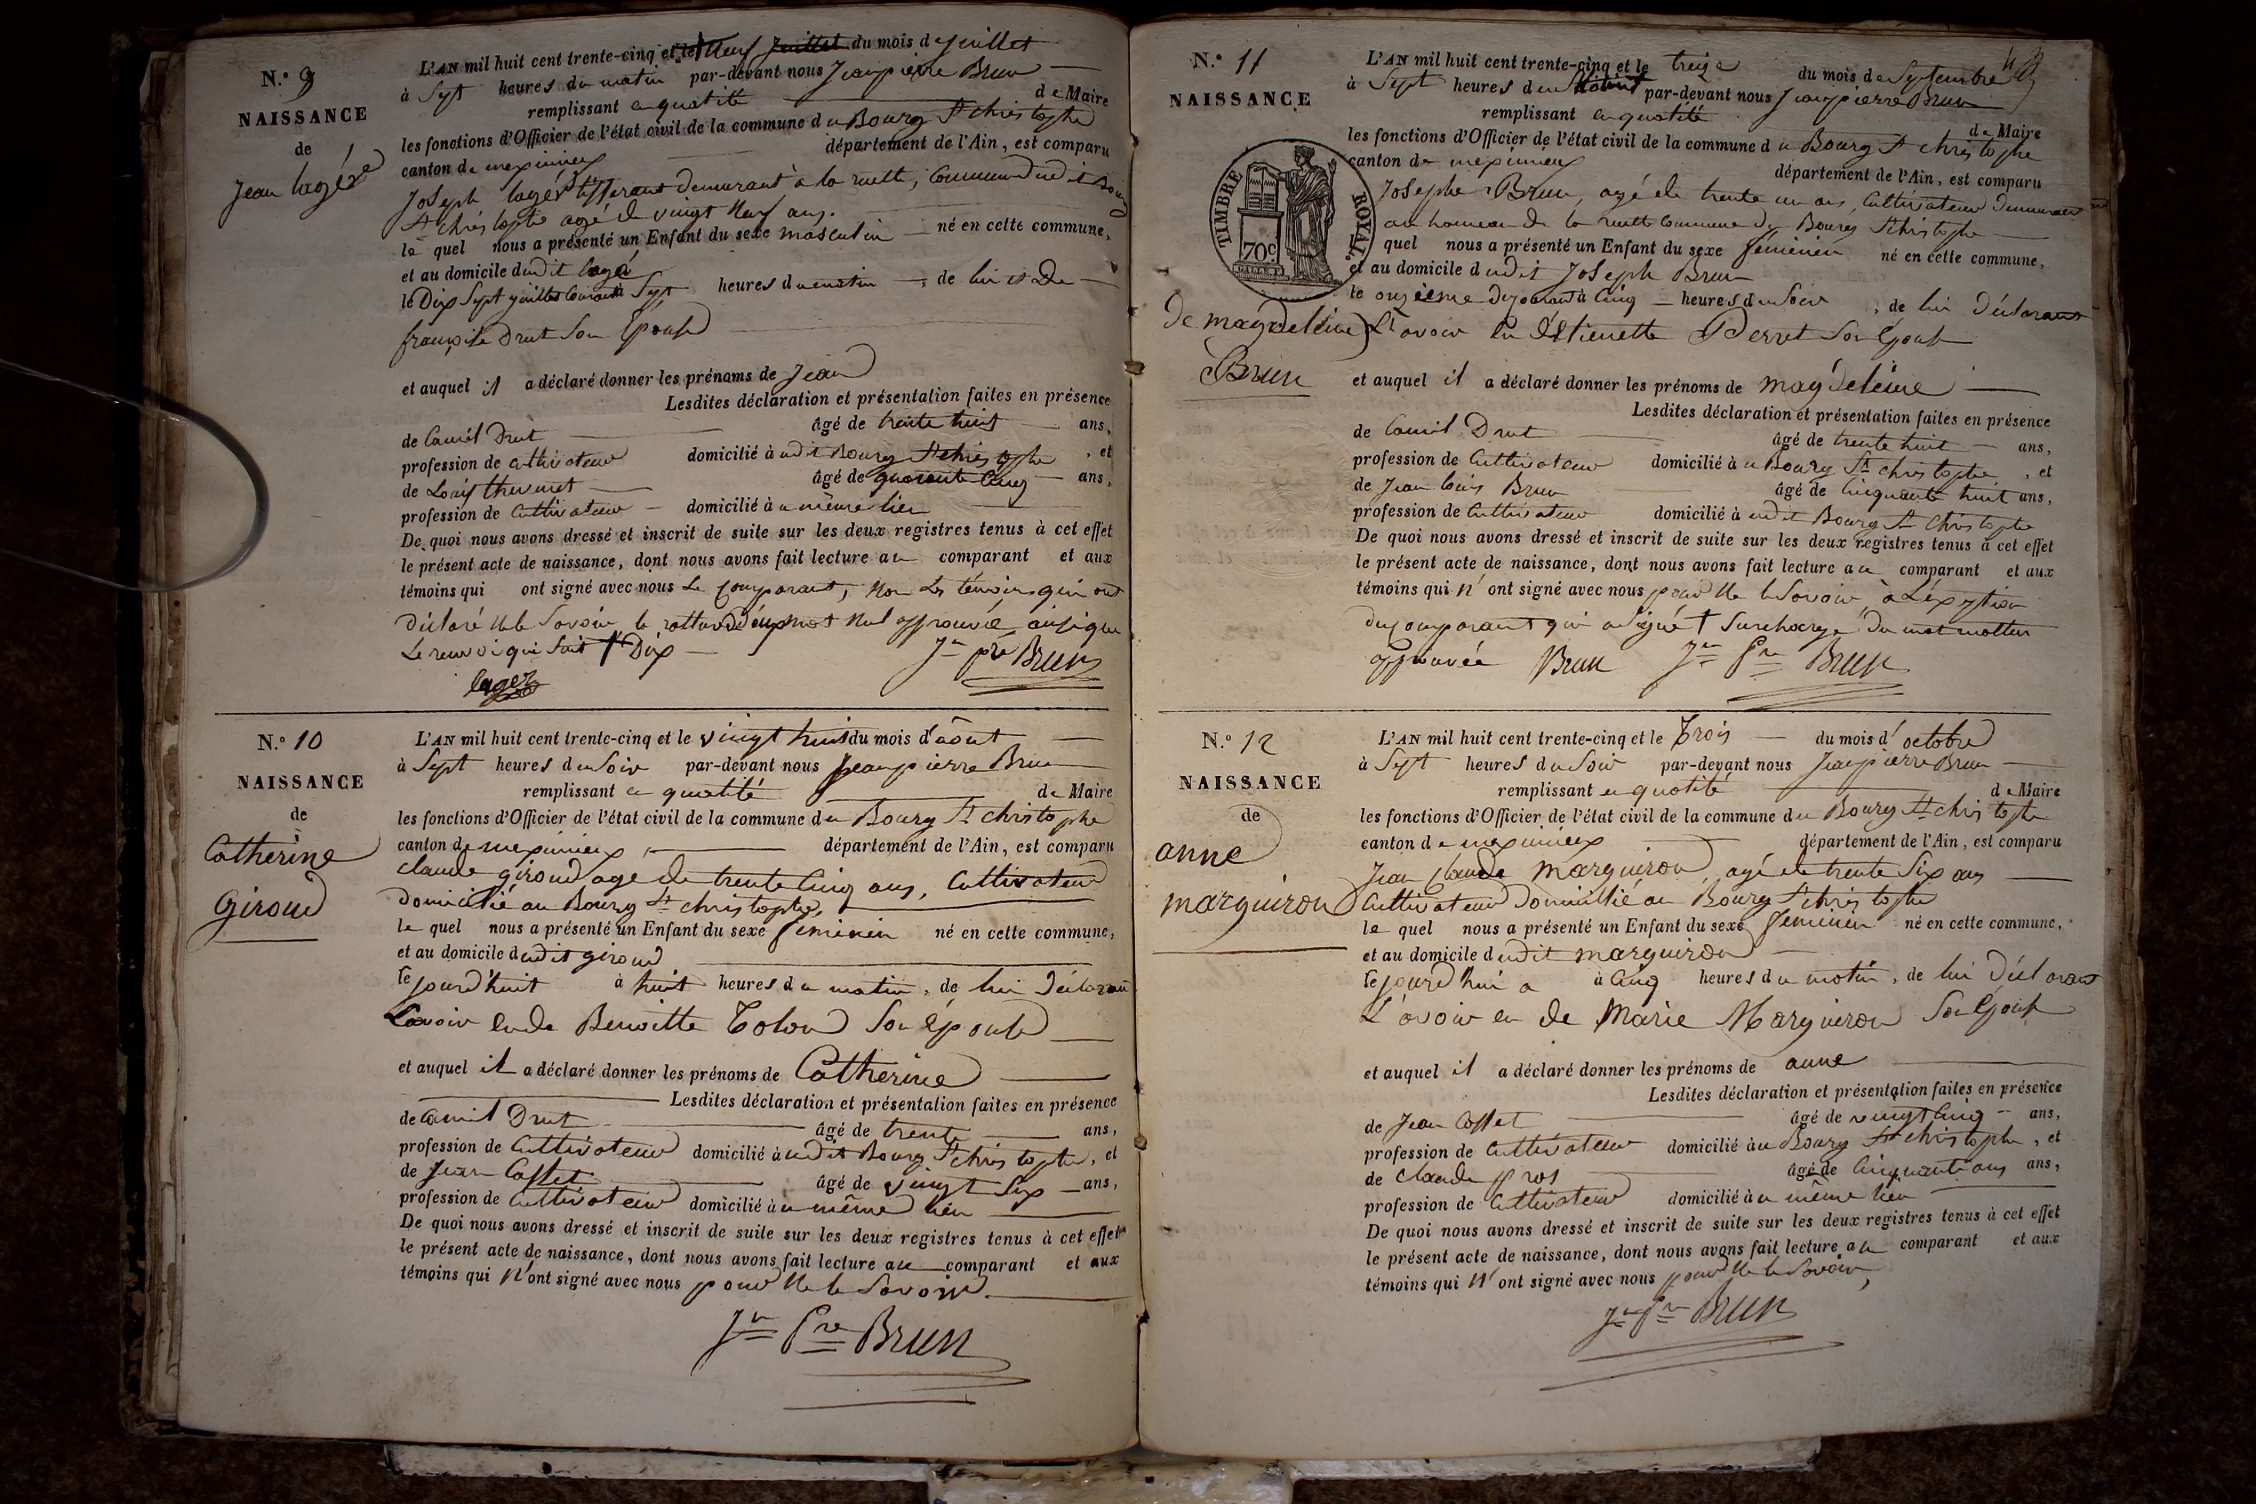 N.º 9
NAISSANCE
de
Jean lagér
L'AN mil huit cent trente-cinq et le neuf du mois de juillet
à Sept heures du matin par-devant nous Jeanpierre Brun
remplissant en quatité de Maire
les fonctions d'Officier de l'état civil de la commune du Bourg St christophe
canton de meximieux département de l'Ain, est comparu
Joseph lagér tisserant demurant à la ruette, Commune dudit Bourg
St christophe agé de vingt neuf ans.
le quel nous a présenté un Enfant du sexe masculin né en cette commune,
et au domicile dudit lagér
le Dix Sept juillet Courant à Sept heures du matin, de lui et De
françoise Drut Son Epouse
et auquel il a déclaré donner les prénoms de Jean
Lesdites déclaration et présentation faites en présence
de Camil Drut âgé de trente huit ans,
profession de cultivateur domicilié à udit Bourg St christophe, et
de Louis thevenet âgé de quarante Cinq ans,
profession de Cultivateur domicilié à u même lieu
De quoi nous avons dressé et inscrit de suite sur les deux registres tenus à cet effet
le présent acte de naissance, dont nous avons fait lecture au comparant et aux
témoins qui ont signé avec nous Le Comparant, Non Les témoins qui ont
Déclaré ne le Savoir la rature mot Nul approuvée, ainsi que
Le renvoi qui Suit Dix
lager Jn pre Brun
N.º 10
NAISSANCE
de
Catherine
Giroud
L'AN mil huit cent trente-cinq et le vingt huit du mois d'août
à Sept heures du Soir par-devant nous Jeanpierre Brun
remplissant en quatité de Maire
les fonctions d'Officier de l'état civil de la commune du Bourg St christophe
canton de meximieux, département de l'Ain, est comparu
claude giroud age de trente Cinq ans, Cultivateur
Domicilié au Bourg St christophe,
le quel nous a présenté un Enfant du sexe feminin né en cette commune,
et au domicile dudit giroud
le jourd'huit à huit heures du matin, de lui Déclarant
Lavoir eu de Benoitte Tolon Son épouse
et auquel il a déclaré donner les prénoms de Catherine
Lesdites déclaration et présentation faites en présence
de Camil Drut âgé de trente ans,
profession de Cultivateur domicilié à udit Bourg St christophe, et
de Jean Cosset âgé de vingt Six ans,
profession de Cultivateur domicilié à u même lieu
De quoi nous avons dressé et inscrit de suite sur les deux registres tenus à cet effet
le présent acte de naissance, dont nous avons fait lecture au comparant et aux
témoins qui n'ont signé avec nous pour Ne le Savoir.
Jn Pre Brun
N.º 11
NAISSANCE
TIMBRE ROYAL.
70c
De magdeleine
Brun
L'AN mil huit cent trente-cinq et le treize du mois de Septembre
à Sept heures du par-devant nous Jeanpierre Brun
remplissant en quatité de Maire
les fonctions d'Officier de l'état civil de la commune du Bourg St christophe
canton de meximieux département de l'Ain, est comparu
Josephe Brun, agé de trente un ans, Cultivateur Demurant
au hameau de la ruette Commune du Bourg St christophe
quel nous a présenté un Enfant du sexe feminien né en cette commune,
et au domicile dudit Joseph Brun
le onzieme Du courant à Cinq heures du Soir, de lui Déclarant
L'avoir eu d'Etienette Perret Son Epouse
et auquel il a déclaré donner les prénoms de magdeleine
Lesdites déclaration et présentation faites en présence
de Camil Drut âgé de trente huit ans,
profession de Cultivateur domicilié à u Bourg St christophe, et
de Jean louis Brun âgé de Cinquante huit ans,
profession de Cultivateur domicilié à udit Bourg St christophe
De quoi nous avons dressé et inscrit de suite sur les deux registres tenus à cet effet
le présent acte de naissance, dont nous avons fait lecture au comparant et aux
témoins qui n'ont signé avec nous pour Ne le Savoir à L'exeption
du comparant qui a Signé † Surcharge Du mot mattin
approuvée Brun Jn Pre Brun
N.º 12
NAISSANCE
de
anne
marguiron
L'AN mil huit cent trente-cinq et le Trois du mois d'octobre
à Sept heures du Soir par-devant nous Jeanpierre Brun
remplissant en quatité de Maire
les fonctions d'Officier de l'état civil de la commune du Bourg St christophe
canton de meximieux département de l'Ain, est comparu
Jean claude marguiron agé de trente Six ans
Cultivateur Domicilié au Bourg St christophe
le quel nous a présenté un Enfant du sexe feminin né en cette commune,
et au domicile dudit marguiron
le jourd'hui à Cinq heures du matin, de lui Déclarant
L'avoir eu de Marie Marguiron Son Epouse
et auquel il a déclaré donner les prénoms de anne
Lesdites déclaration et présentation faites en présence
de Jean Cosset âgé de vingt Cinq ans,
profession de Cultivateur domicilié à u Bourg St christophe, et
de Claude gros âgé de Cinquante ans ans,
profession de Cultivateur domicilié à u même lieu
De quoi nous avons dressé et inscrit de suite sur les deux registres tenus à cet effet
le présent acte de naissance, dont nous avons fait lecture au comparant et aux
témoins qui n'ont signé avec nous pour Ne le Savoir,
Jn Pre Brun